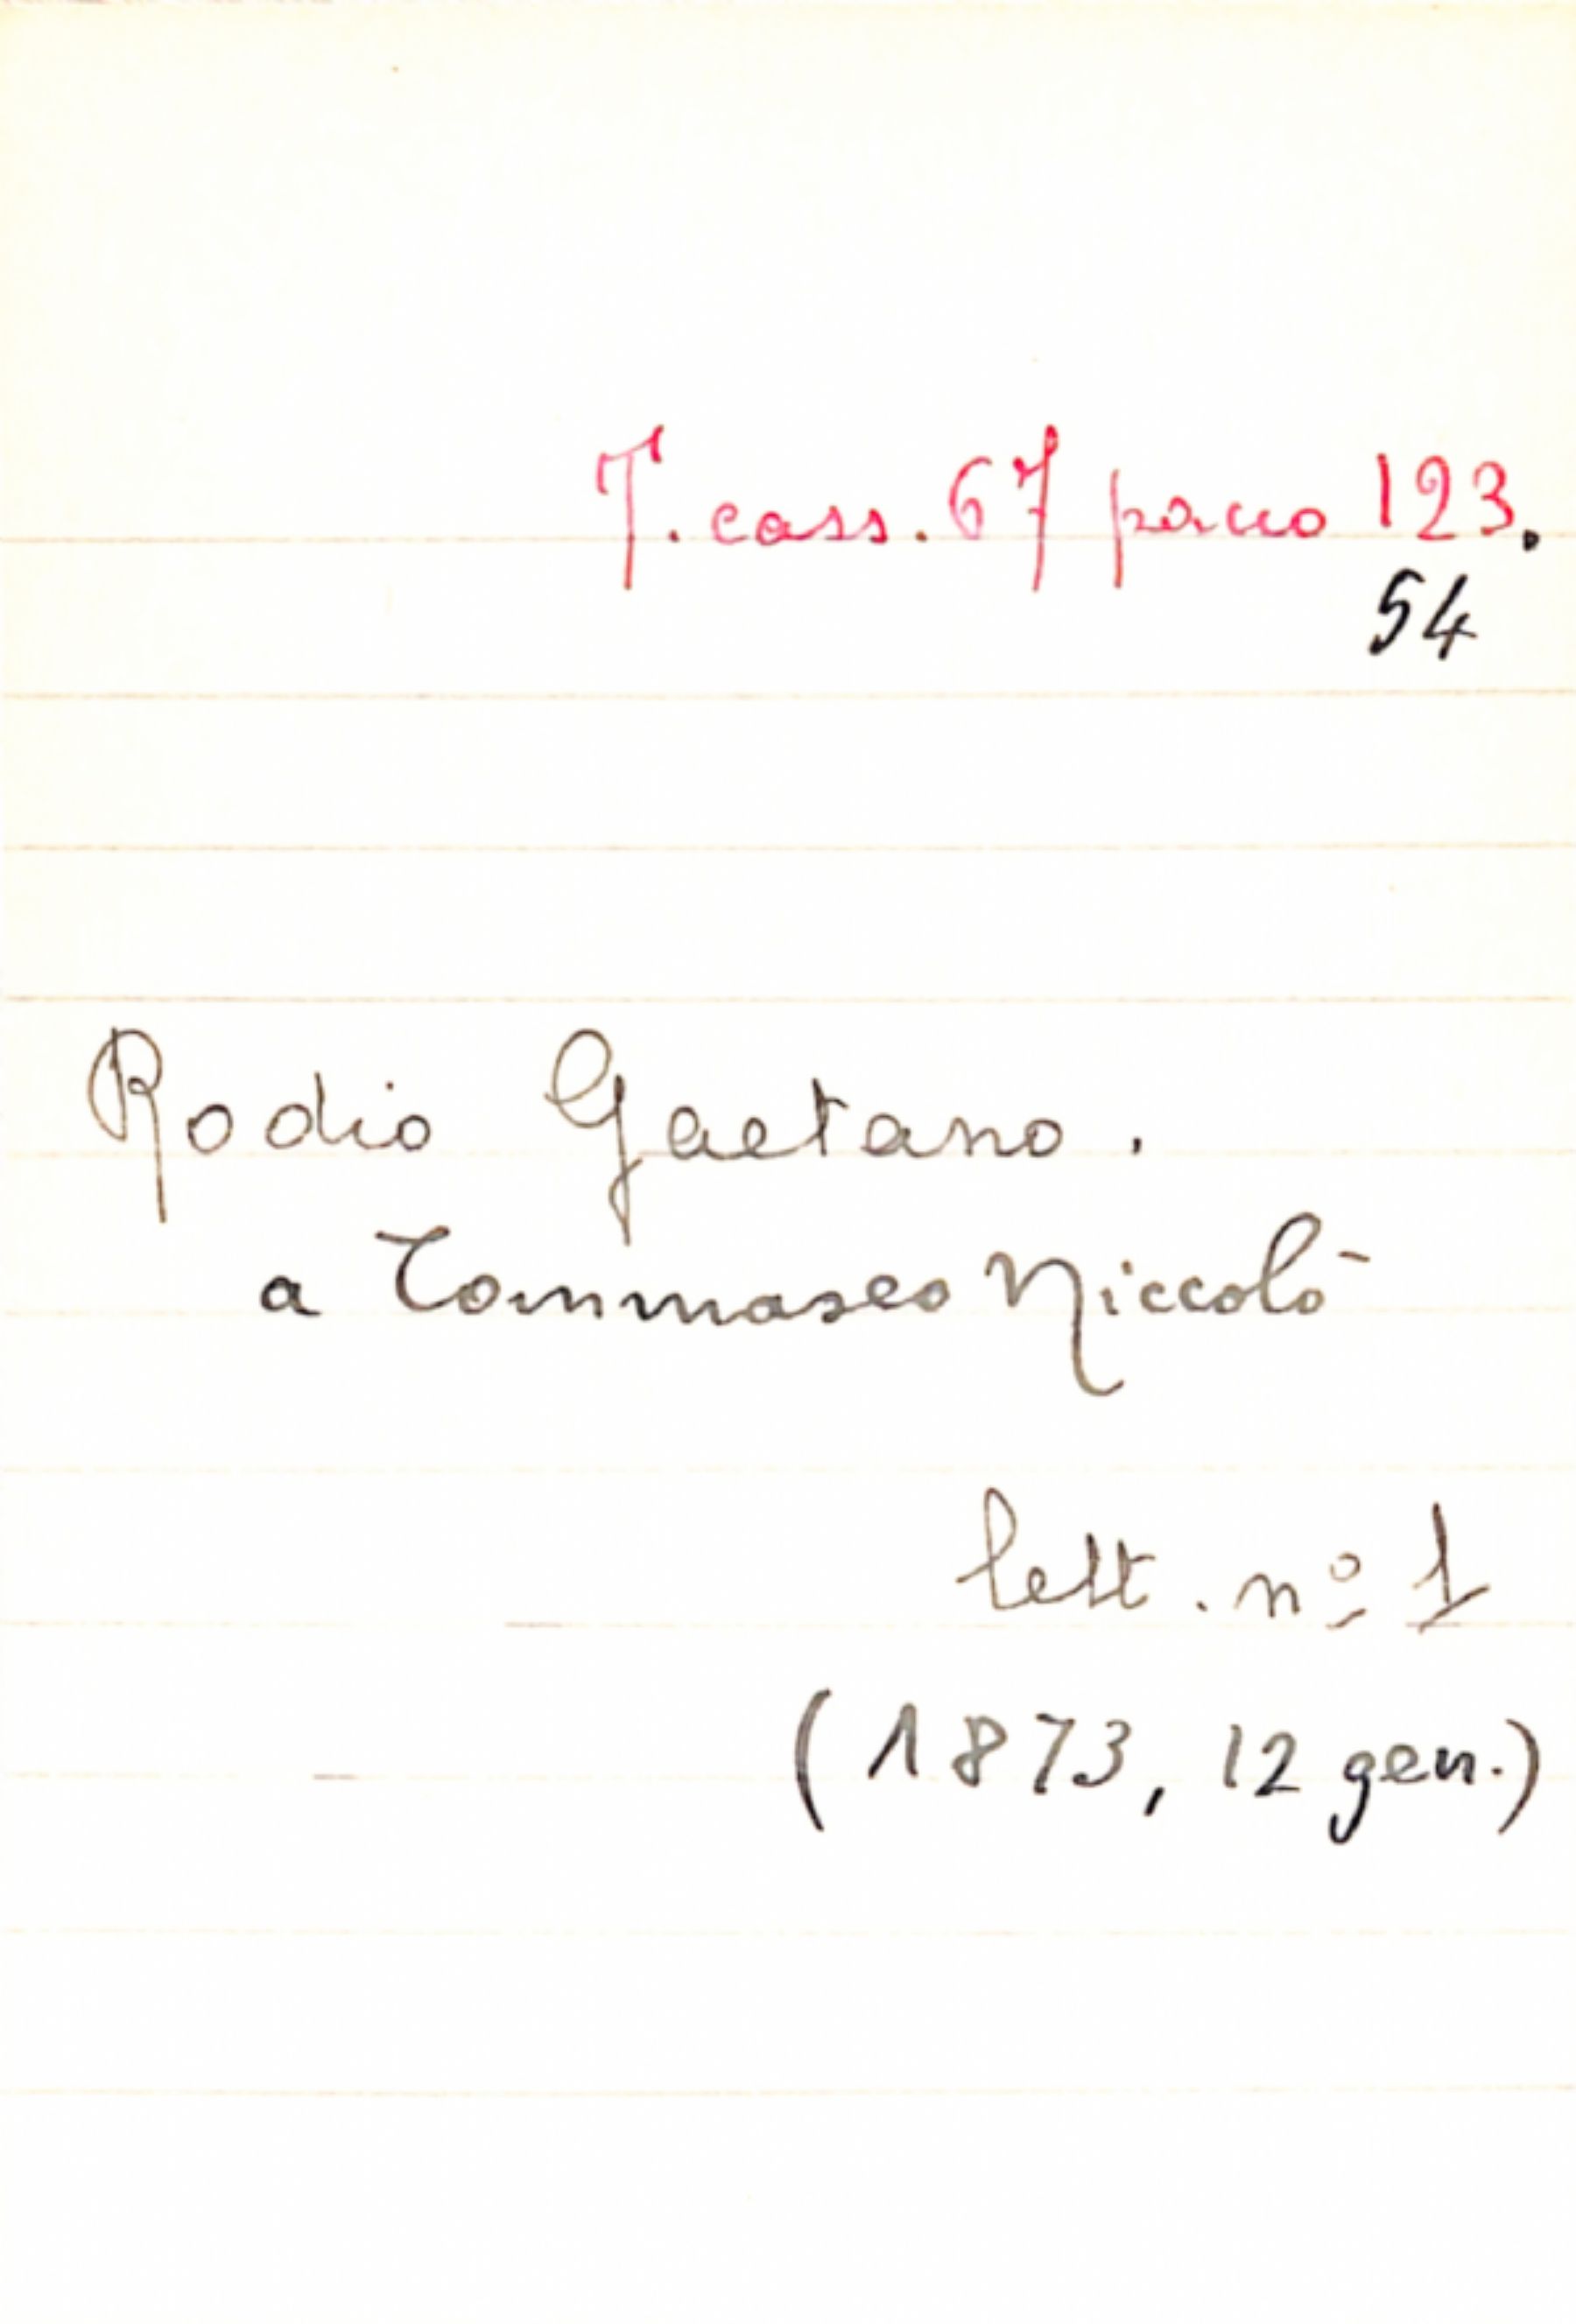 T. cass. 67 pacco 123.
54
Rodio Gaetano.
a Tommaseo Niccolò
lett. nº 1
(1873, 12 gen.)